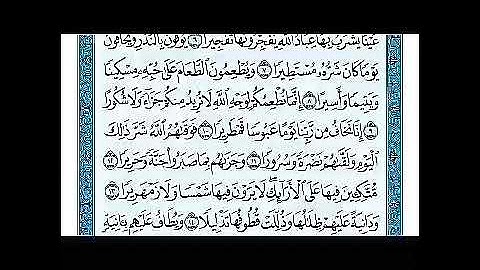 عَيْنًا يَشْرَبُ بِهَا عِبَادُ اللَّهِ يُفَجِّرُونَهَا تَفْجِيرًا ٦ يُوفُونَ بِالنَّذْرِ وَيَخَافُونَ
يَوْمًا كَانَ شَرُّهُ مُسْتَطِيرًا ٧ وَيُطْعِمُونَ الطَّعَامَ عَلَى حُبِّهِ مِسْكِينًا
وَيَتِيمًا وَأَسِيرًا ٨ إِنَّمَا نُطْعِمُكُمْ لِوَجْهِ اللَّهِ لَا نُرِيدُ مِنْكُمْ جَزَاءً وَلَا شُكُورًا
٩ إِنَّا نَخَافُ مِنْ رَبِّنَا يَوْمًا عَبُوسًا قَمْطَرِيرًا ١٠ فَوَقَاهُمُ اللَّهُ شَرَّ ذَلِكَ
الْيَوْمِ وَلَقَّاهُمْ نَضْرَةً وَسُرُورًا ١١ وَجَزَاهُمْ بِمَا صَبَرُوا جَنَّةً وَحَرِيرًا ١٢
مُتَّكِئِينَ فِيهَا عَلَى الْأَرَائِكِ لَا يَرَوْنَ فِيهَا شَمْسًا وَلَا زَمْهَرِيرًا ١٣
وَدَانِيَةً عَلَيْهِمْ ظِلَالُهَا وَذُلِّلَتْ قُطُوفُهَا تَذْلِيلًا ١٤ وَيُطَافُ عَلَيْهِمْ بِآنِيَةٍ